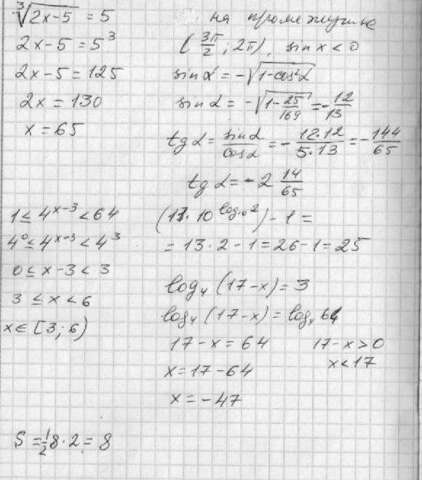 ∛(2x-5) = 5
2x-5 = 5³
2x-5 = 125
2x = 130
x = 65
на промежутке
(3π/2; 2π), sin x < 0
sin α = -√(1-cos²α)
sin α = -√(1-25/169) = -12/13
tg α = sin α/cos α = -12·12/5·13 = -144/65
tg α = -2 14/65
1 ≤ 4^(x-3) < 64
4⁰ ≤ 4^(x-3) < 4³
0 ≤ x-3 < 3
3 ≤ x < 6
x ∈ [3; 6)
(13·10^(log₁₀2)) - 1 =
= 13·2-1 = 26-1 = 25
log₄(17-x) = 3
log₄(17-x) = log₄64
17-x = 64 17-x > 0
x = 17-64 x < 17
x = -47
S = 1/2 8·2 = 8